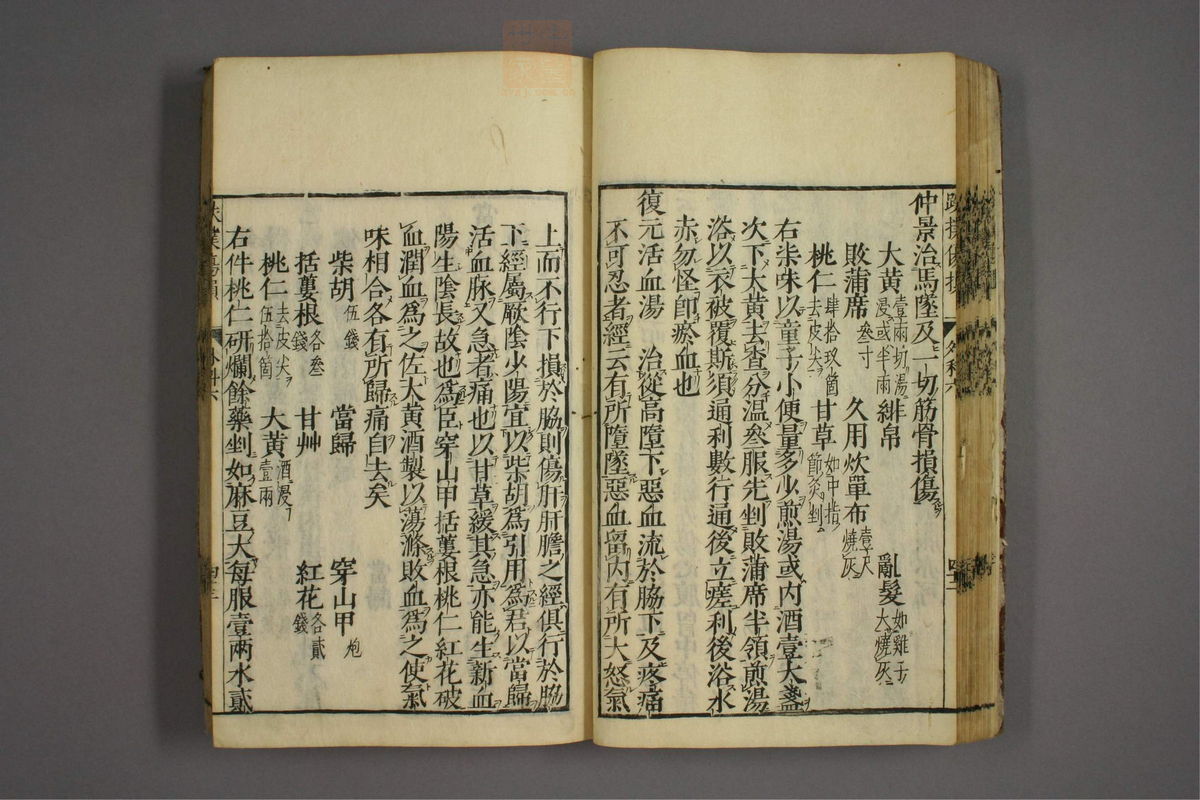 仲景治馬墜及一切筋骨損傷
大黄壹兩切湯浸或半兩 緋帛 亂髮如雞子大燒灰
敗蒲席叁寸 久用炊單布壹尺燒灰
桃仁肆拾玖箇去皮尖 甘草如中指節炙剉
右柒味以童子小便量多少煎湯或内酒壹大盞
次下大黄去查分温叁服先剉敗蒲席半領煎湯
浴以衣被覆斯須通利數行痛後立瘥利後浴水
赤勿怪即瘀血也
復元活血湯 治從高墮下惡血流於脇下及疼痛
不可忍者經云有所墮墜惡血留内有所大怒氣
上而不行下損於脇則傷肝肝膽之經俱行於脇
下經屬厥陰少陽宜以柴胡爲引用爲君以當歸
活血脉又急者痛也以甘草緩其急亦能生新血
陽生陰長故也爲臣穿山甲括蔞根桃仁紅花破
血潤血爲之佐大黄酒製以蕩滌敗血爲之使氣
味相合各有所歸痛自去矣
柴胡伍錢 當歸 穿山甲炮
括蔞根各叁錢 甘艸 紅花各貳錢
桃仁去皮尖伍拾箇 大黄酒浸壹兩
右件桃仁研爛餘藥剉如麻豆大每服壹兩水貳